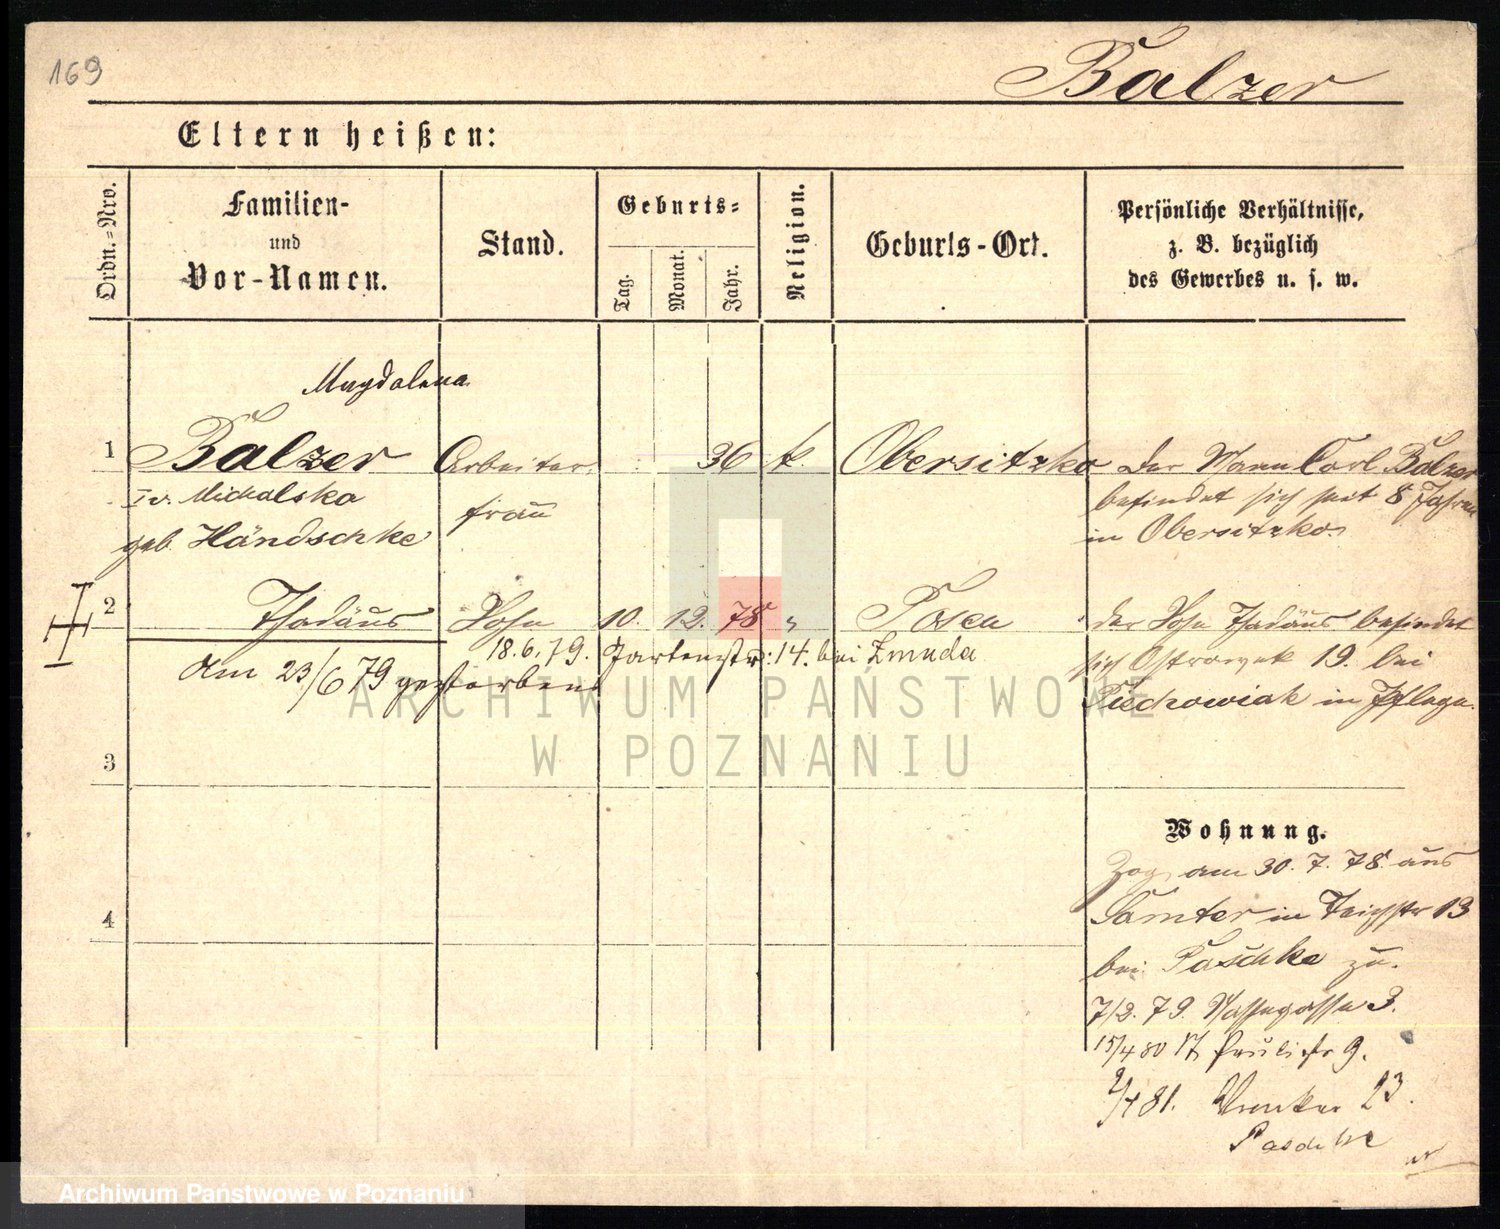 169
Balzer
Eltern heißen:
Ordn.=Nro.
Familien-
und
Vor-Namen.
Stand.
Geburts=
Tag.
Monat.
Jahr.
Religion.
Geburts-Ort.
Persönliche Verhältnisse,
z. B. bezüglich
des Gewerbes u. s. w.
Magdalena
1 Balzer Arbeiter 36 k. Obersitzko Der Mann Carl Balzer
I v. Michalska frau befindet sich seit 8 Jahren
geb. Händschke in Obersitzko.
2 Thadäus Sohn 10. 12. 78 " Posen der Sohn Thadäus befindet
18.6.79. Gartenstr: 14. bei Zmuda sich Ostrowek 19. bei
Am 23/6 79 gestorben Piechowiak in Pflege.
ARCHIWUM PAŃSTWOWE
W POZNANIU
3
Wohnung.
Zog am 30. 7. 78. aus
4 Samter in Teichstr 13
bei Paschke zu.
7/2. 79. Wassergasse 3.
15/4 80 Paulistr 9.
2/4 81. 23.
Paschke
Archiwum Państwowe w Poznaniu